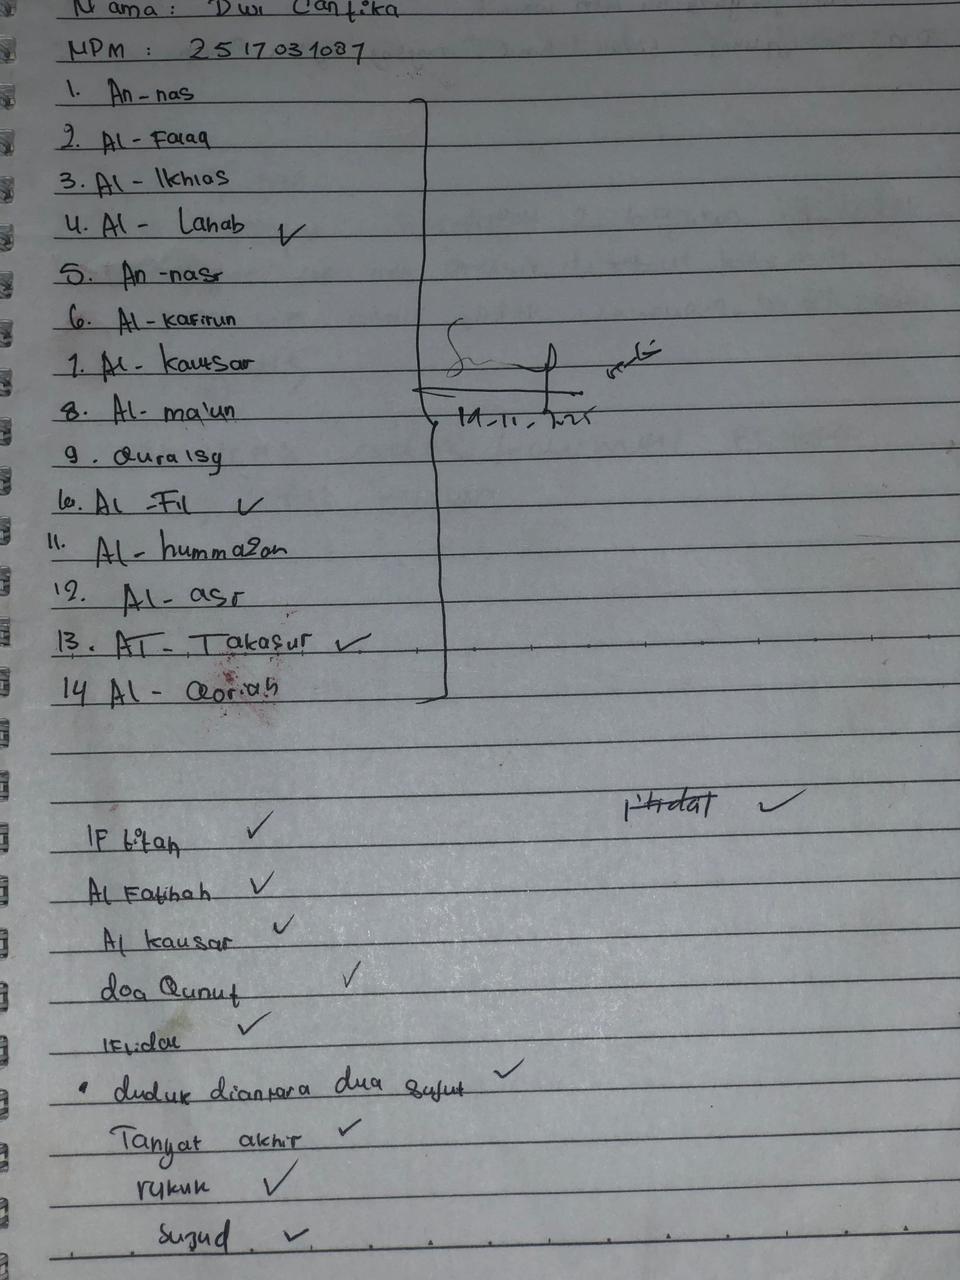 Nama: Dwi Cantika
NPM : 2517031087
1. An-nas
2. Al-Falaq
3. Al-Ikhlas
4. Al-Lahab ✓
5. An-nasr
6. Al-kafirun
7. Al-kautsar
8. Al-ma'un
9. Quraisy
10. Al-Fil ✓
11. Al-hummazah
12. Al-asr
13. AT-Takasur ✓
14 Al-Qoriah
19-11-2025
i'tidal ✓
IFtitah ✓
Al Fatihah ✓
Al kausar ✓
doa Qunut ✓
✓
• duduk diantara dua sujut ✓
Tahyat akhir ✓
rukuk ✓
Sujud ✓